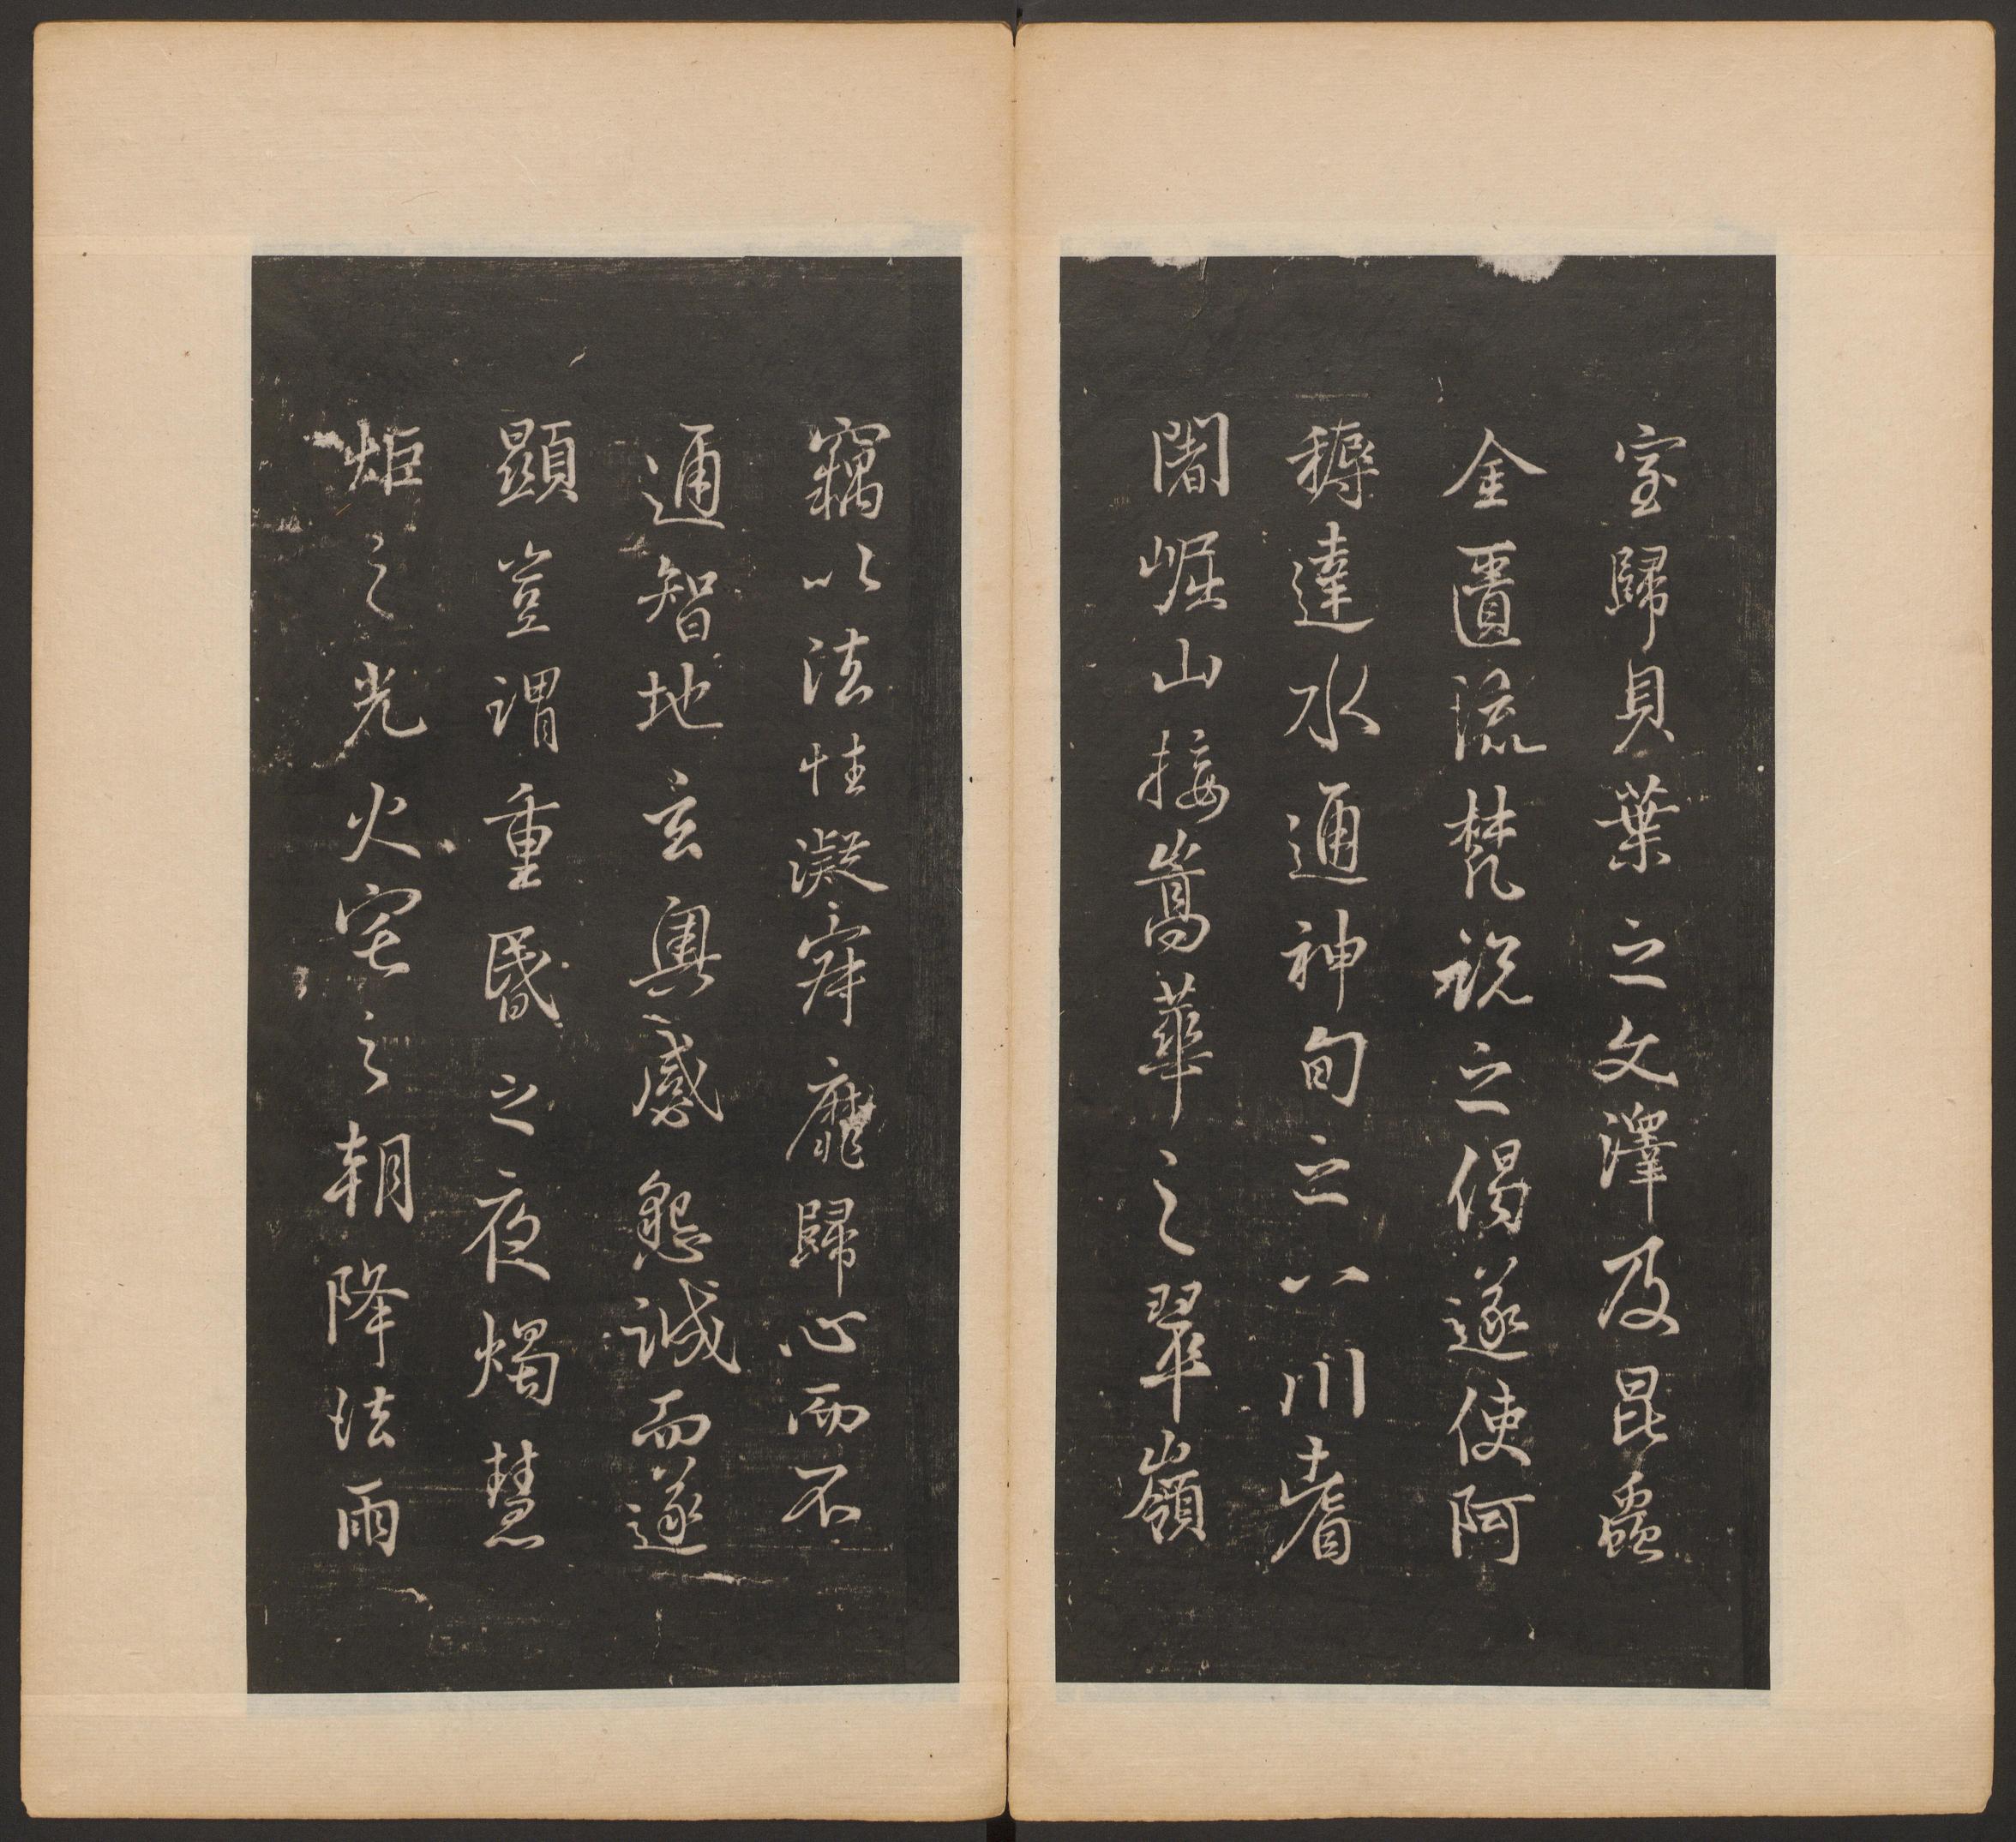 室歸貝葉之文澤及昆蟲
金匱流梵說之偈遂使阿
耨達水通神甸之八川耆
闍崛山接嵩華之翠嶺
竊以法性凝寂靡歸心而不
通智地玄奧感懇誠而遂
顯豈謂重昏之夜燭慧
炬之光火宅之朝降法雨